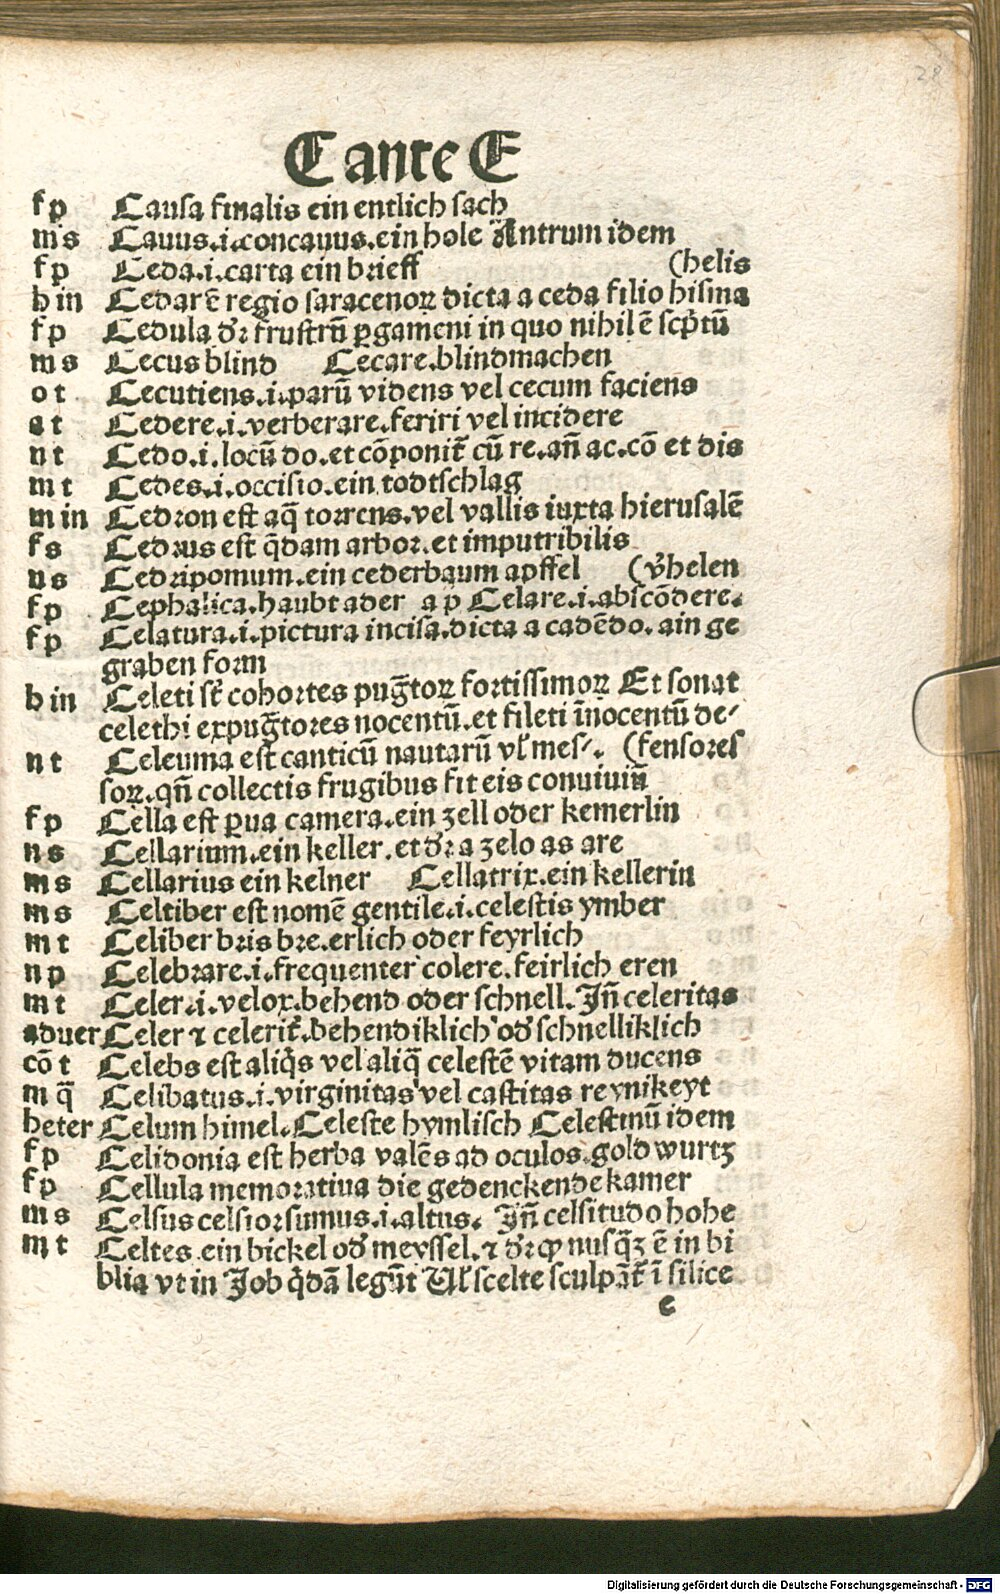 28
C ante E
f p Causa finalis ein entlich sach
m s Cauus .i. concauus. ein hole Antrum idem
f p Ceda .i. carta ein brieff (helis
h in Cedarē regio saracenoꝝ dicta a ceda filio hisma
f p Cedula dr̄ frustrū ꝑgameni in quo nihil ē scp̄tū
m s Cecus blind Cecare. blindmachen
o t Cecutiens .i. parū videns vel cecum faciens
a t Cedere .i. verberare. feriri vel incidere
n t Cedo .i. locū do. et cōponit̄ cū re. an̄ ac. cō et dis
m t Cedes .i. occisio. ein todtschlag
m in Cedron est aq̄ torrens. vel vallis iuxta hierusalē
f s Cedrus est q̄dam arbor. et imputribilis
n s Cedripomum. ein cederbaum apffel (v̄helen
f p Cephalica. haubt ader a p Celare .i. abscōdere.
f p Celatura .i. pictura incisa. dicta a cadēdo. ain ge
graben form
h in Celeti st̄ cohortes pugn̄toꝝ fortissimoꝝ Et sonat
celethi expugn̄tores nocentū. et fileti īnocentū de⸗
n t Celeuma est canticū nautarū vl̄ mes⸗. (fensores
soꝝ. qn̄ collectis frugibus fit eis conuiuiū
f p Cella est ꝑua camera. ein zell oder kemerlin
n s Cellarium. ein keller. et dr̄ a zelo as are
m s Cellarius ein kelner Cellatrix. ein kellerin
m s Celtiber est nomē gentile .i. celestis ymber
m t Celiber bris bre. erlich oder feyrlich
n p Celebrare .i. frequenter colere. feirlich eren
m t Celer .i. velox. behend oder schnell. Jn̄ celeritas
aduer Celer ⁊ celerit̄. behendiklich od̄ schnelliklich
cō t Celebs est aliq̄s vel aliq̄ celestē vitam ducens
m q̄ Celibatus .i. virginitas vel castitas reynikeyt
heter Celum himel. Celeste hymlisch Celestinū idem
f p Celidonia est herba valēs ad oculos. gold wurtz
f p Cellula memoratiua die gedenckende kamer
m s Celsus celsior sumus .i. altus. Jn̄ celsitudo hohe
m t Celtes ein bickel od̄ meyssel. ⁊ dr̄ ꝙ nusq̄ꝫ ē in bi
blia vt in Job q̄dā legūt Vl̄ scelte sculpāt̄ ī silice
e
Digitalisierung gefördert durch die Deutsche Forschungsgemeinschaft - DFG